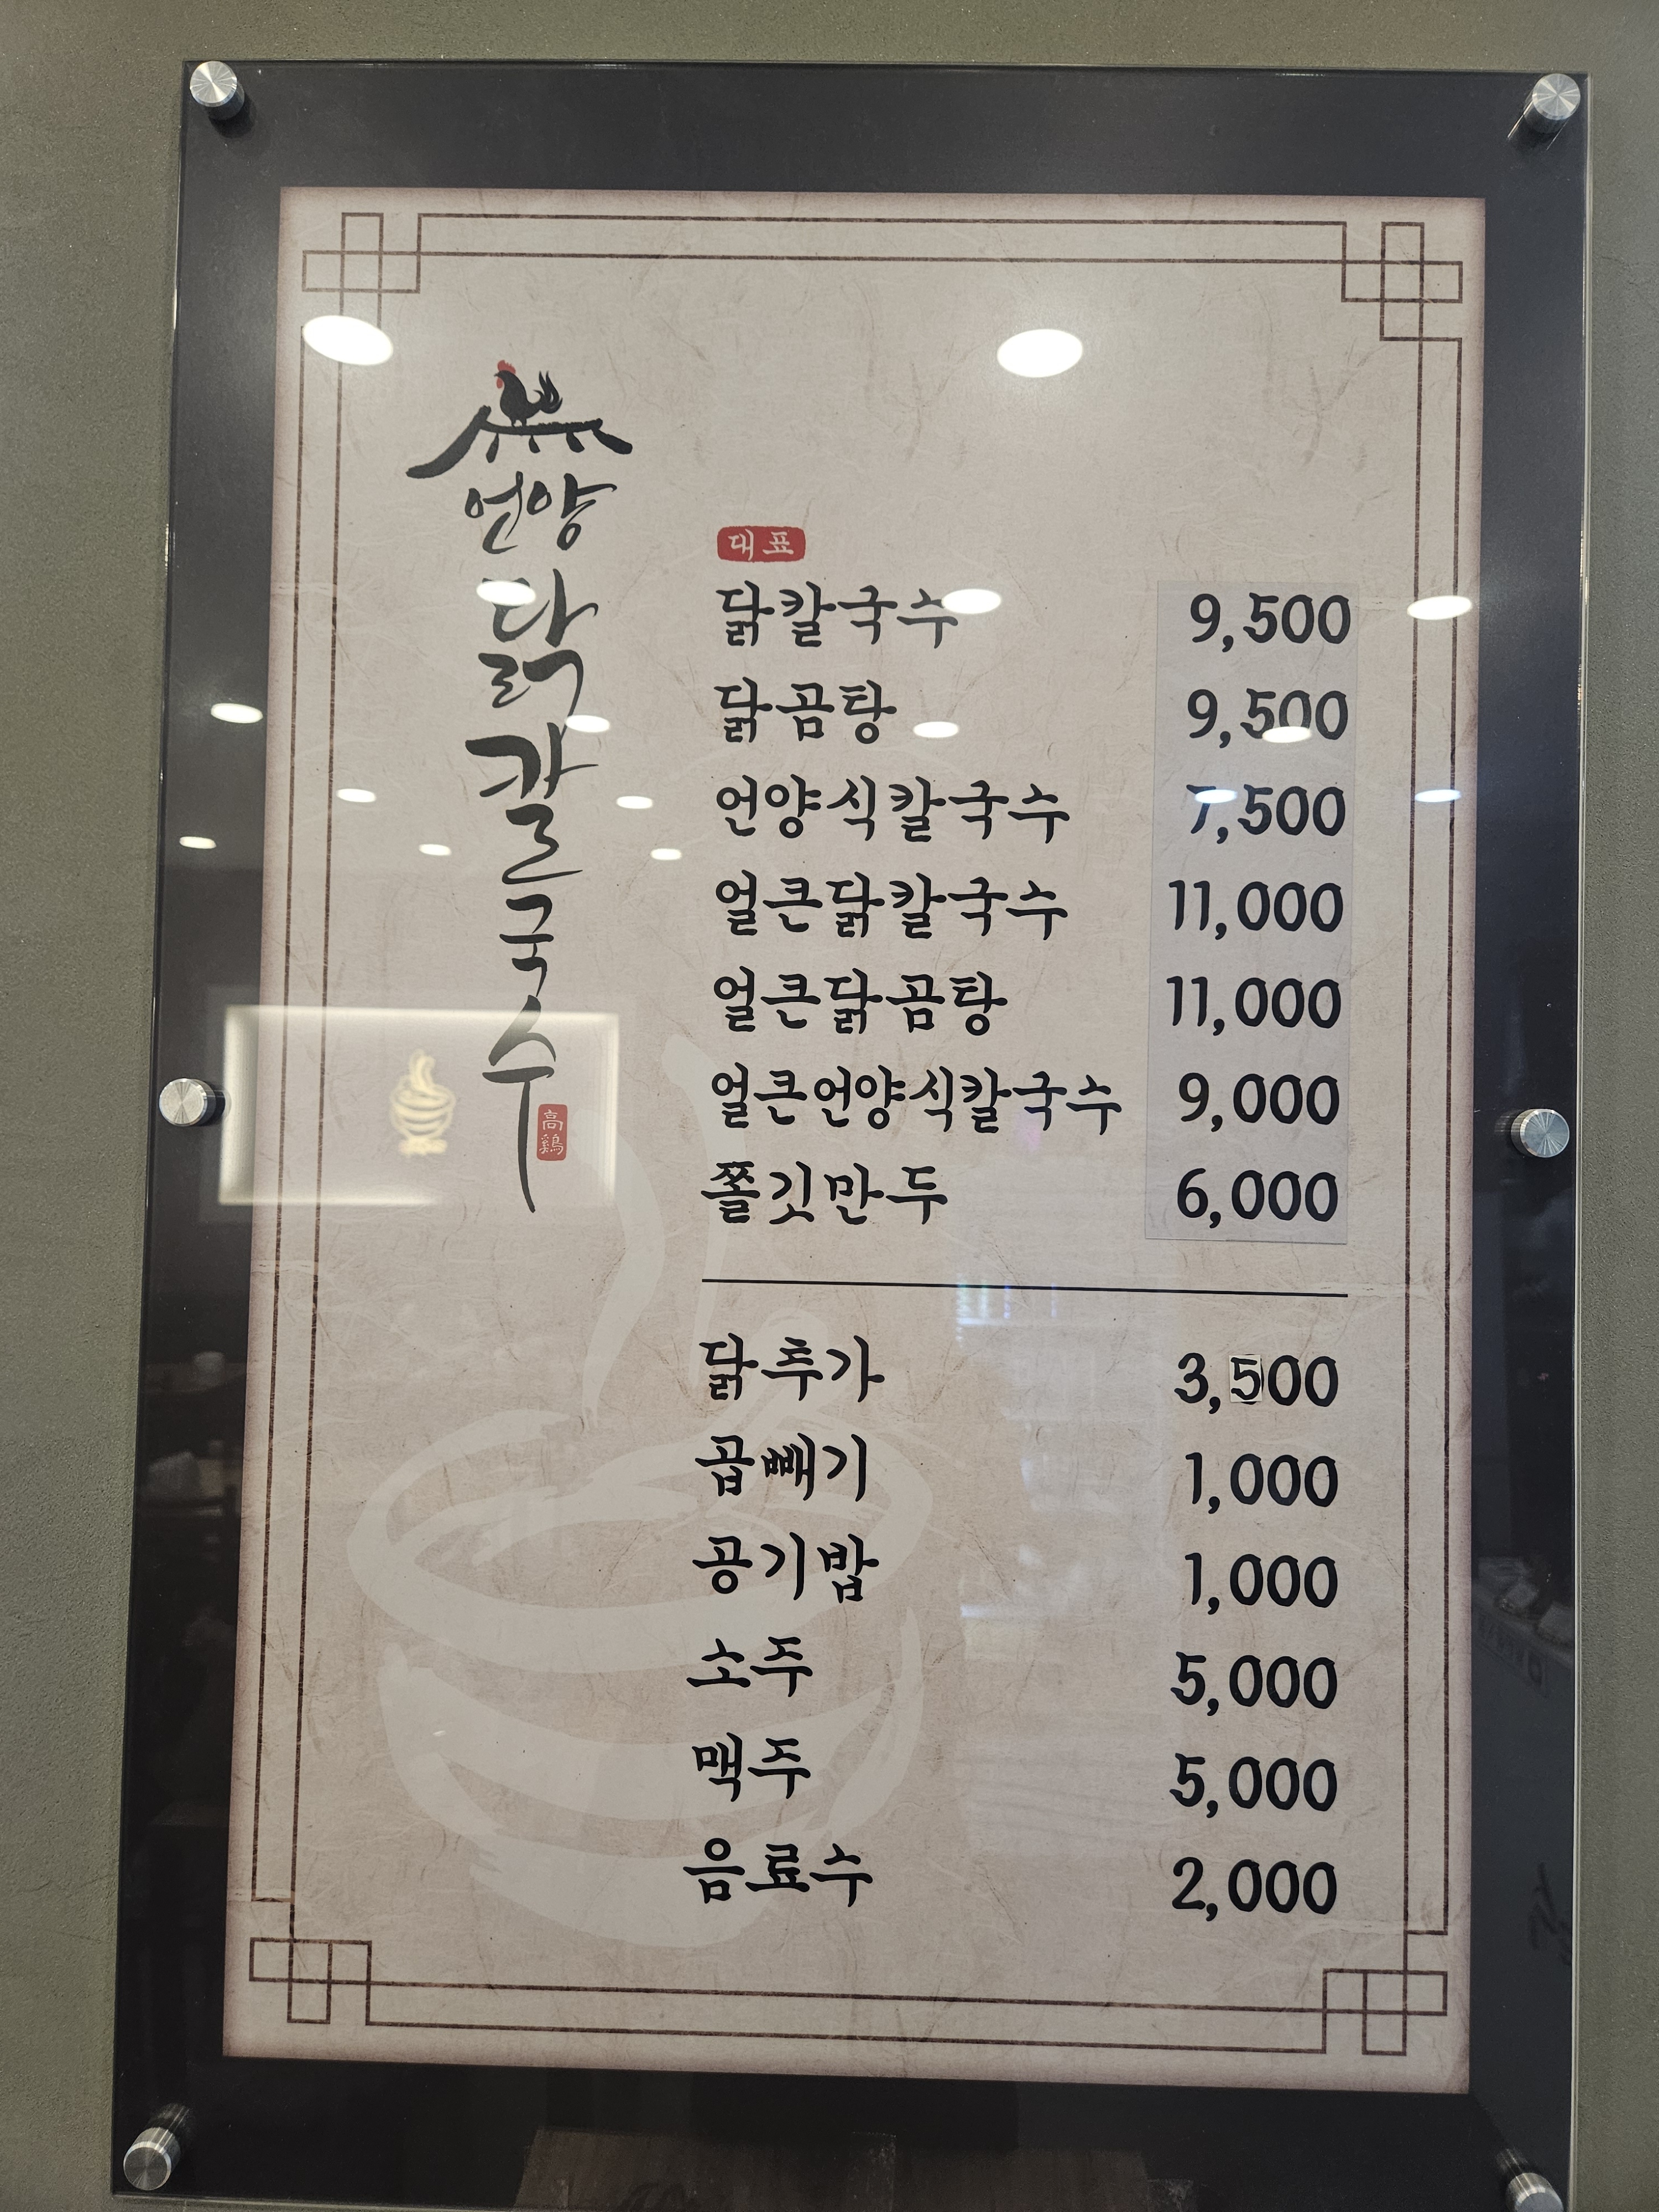 언양
닭칼국수
高鷄
대표
닭칼국수 9,500
닭곰탕 9,500
언양식칼국수 7,500
얼큰닭칼국수 11,000
얼큰닭곰탕 11,000
얼큰언양식칼국수 9,000
쫄깃만두 6,000
닭추가 3,500
곱빼기 1,000
공기밥 1,000
소주 5,000
맥주 5,000
음료수 2,000